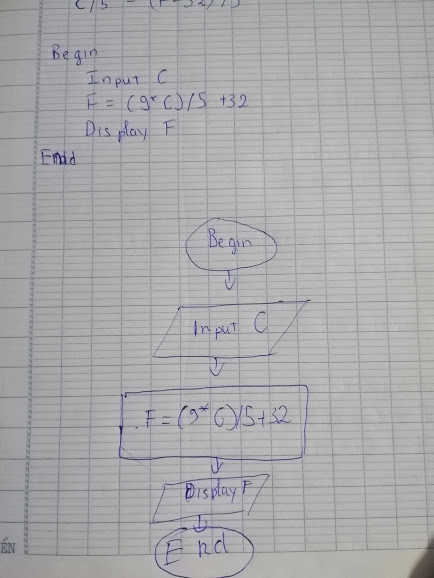 C/5 = (F-32)/9
Begin
Input C
F = (9* C)/5 +32
Display F
End
Begin
Input C
F = (9* C)/5+32
Display F
End
ÉN